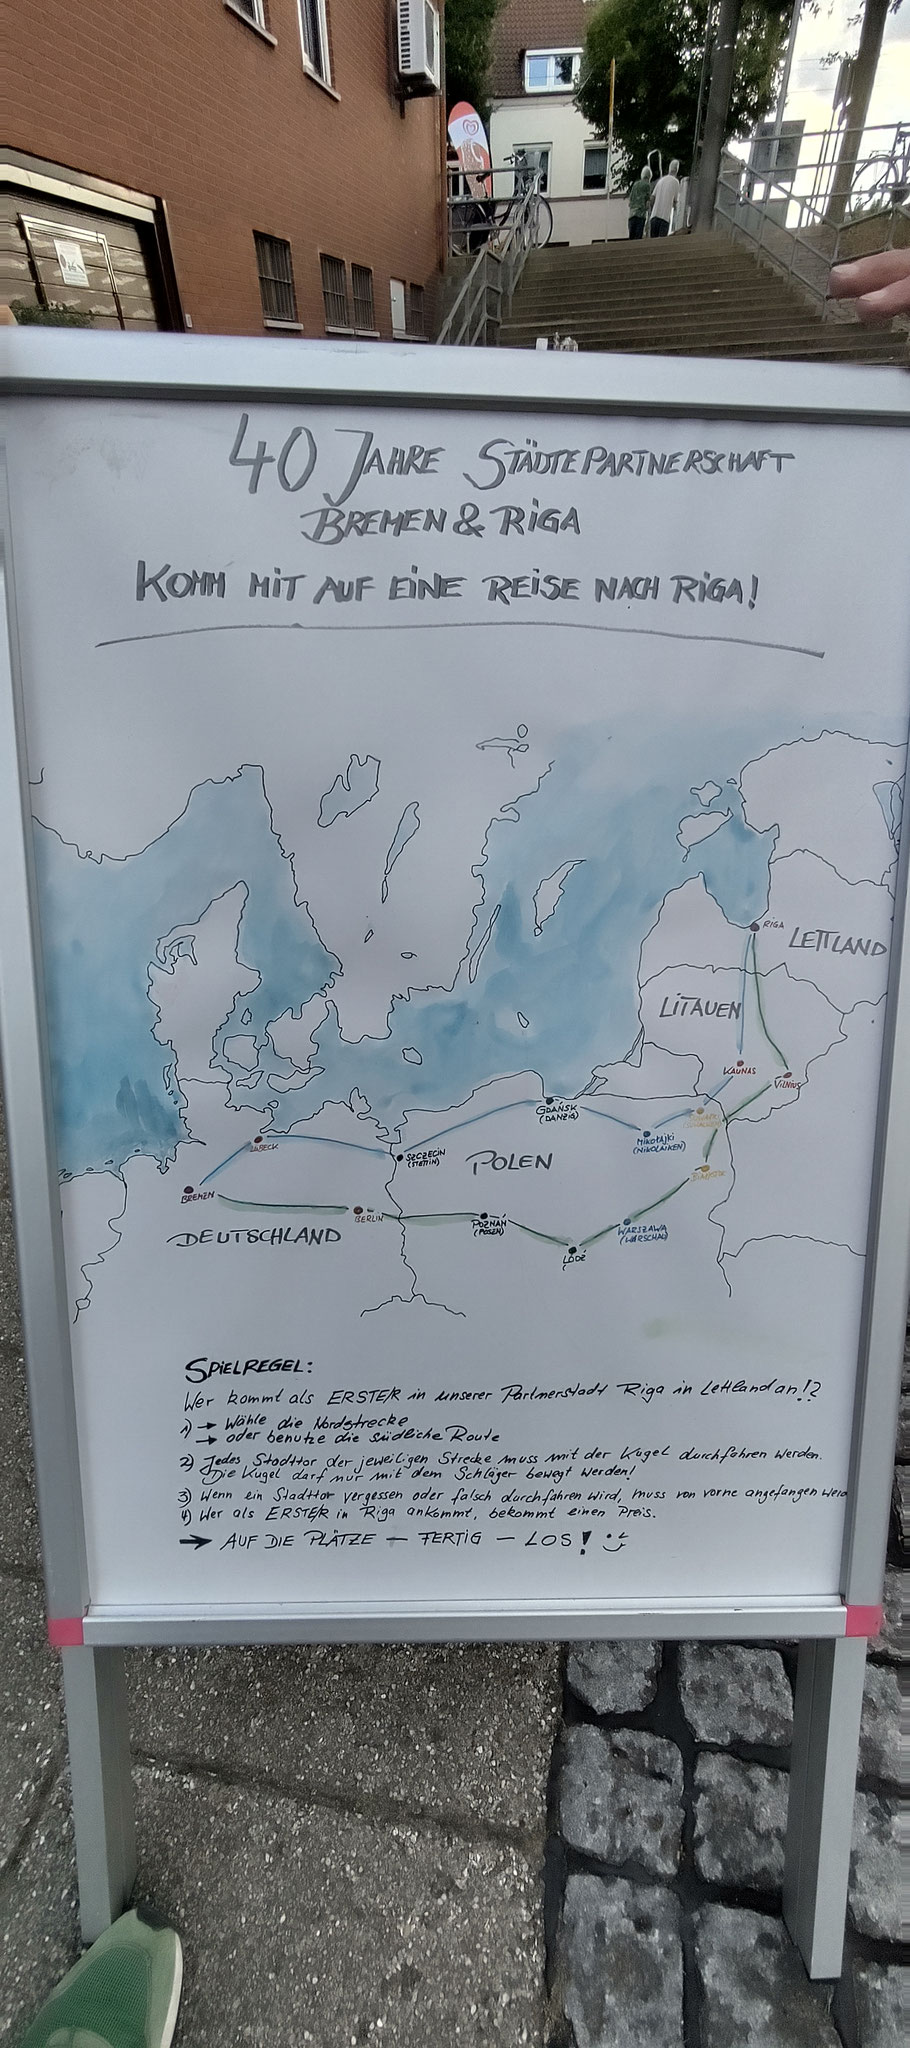 40 JAHRE STÄDTEPARTNERSCHAFT
BREMEN & RIGA
KOMM MIT AUF EINE REISE NACH RIGA!
RIGA
LETTLAND
LITAUEN
KAUNAS
VILNIUS
GDAŃSK
(DANZIG)
MIKOŁAJKI
(NIKOLAIKEN)
LÜBECK
SZCZECIN
(STETTIN)
POLEN
BREMEN
BERLIN
POZNAŃ
(POSEN)
WARSZAWA
(WARSCHAU)
DEUTSCHLAND
ŁÓDŹ
SPIELREGEL:
Wer kommt als ERSTE/R in unserer Partnerstadt Riga in Lettland an!?
1) → Wähle die Nordstrecke
→ oder benutze die südliche Route
2) Jedes Stadttor der jeweiligen Strecke muss mit der Kugel durchfahren werden.
Die Kugel darf nur mit dem Schläger bewegt werden!
3) Wenn ein Stadttor vergessen oder falsch durchfahren wird, muss von vorne angefangen werd
4) Wer als ERSTE/R in Riga ankommt, bekommt einen Preis.
→ AUF DIE PLÄTZE – FERTIG – LOS!